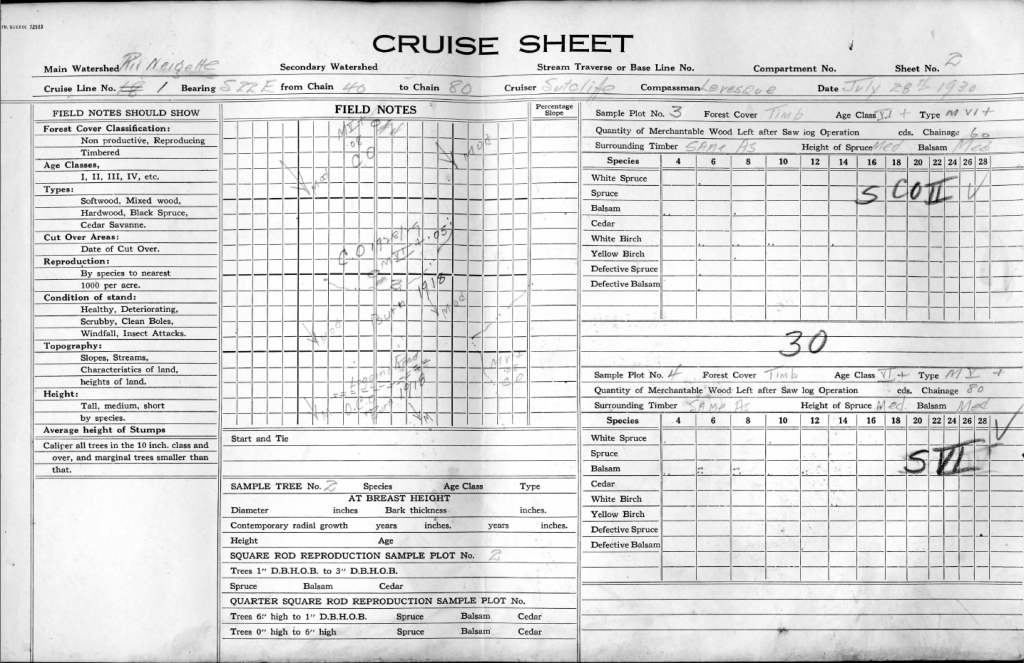 CRUISE SHEET
Main Watershed Secondary Watershed Stream Traverse or Base Line No. Compartment No. Sheet No. 2
Cruise Line No. 18 1 Bearing S22E from Chain 40 to Chain 80 Cruiser Sutclife Compassman Levesque Date July 28th 1930
FIELD NOTES SHOULD SHOW
Forest Cover Classification:
Non productive, Reproducing
Timbered
Age Classes,
I, II, III, IV, etc.
Types:
Softwood, Mixed wood,
Hardwood, Black Spruce,
Cedar Savanne.
Cut Over Areas:
Date of Cut Over.
Reproduction:
By species to nearest
1000 per acre.
Condition of stand:
Healthy, Deteriorating,
Scrubby, Clean Boles,
Windfall, Insect Attacks.
Topography:
Slopes, Streams,
Characteristics of land,
heights of land.
Height:
Tall, medium, short
by species.
Average height of Stumps
Caliper all trees in the 10 inch. class and
over, and marginal trees smaller than
that.
FIELD NOTES
Percentage
Slope
C.O
Mod
Mod
Burn 1918
Mod
Mod
M VI +
CO
Start and Tie
SAMPLE TREE No. 2 Species Age Class Type
AT BREAST HEIGHT
Diameter inches Bark thickness inches.
Contemporary radial growth years inches. years inches.
Height Age
SQUARE ROD REPRODUCTION SAMPLE PLOT No. 2
Trees 1" D.B.H.O.B. to 3" D.B.H.O.B.
Spruce Balsam Cedar
QUARTER SQUARE ROD REPRODUCTION SAMPLE PLOT No.
Trees 6" high to 1" D.B.H.O.B. Spruce Balsam Cedar
Trees 0" high to 6" high Spruce Balsam Cedar
Sample Plot No. 3 Forest Cover Timb Age Class VI + Type M VI +
Quantity of Merchantable Wood Left after Saw log Operation cds. Chainage 60
Surrounding Timber SAME AS Height of Spruce Med Balsam Med
Species 4 6 8 10 12 14 16 18 20 22 24 26 28
White Spruce
Spruce
S CO II
Balsam
Cedar
White Birch
Yellow Birch
Defective Spruce
Defective Balsam
30
Sample Plot No. 4 Forest Cover Timb Age Class VI + Type M V +
Quantity of Merchantable Wood Left after Saw log Operation cds. Chainage 80
Surrounding Timber SAME AS Height of Spruce Med Balsam Med
Species 4 6 8 10 12 14 16 18 20 22 24 26 28
White Spruce
Spruce
S VI
Balsam
Cedar
White Birch
Yellow Birch
Defective Spruce
Defective Balsam